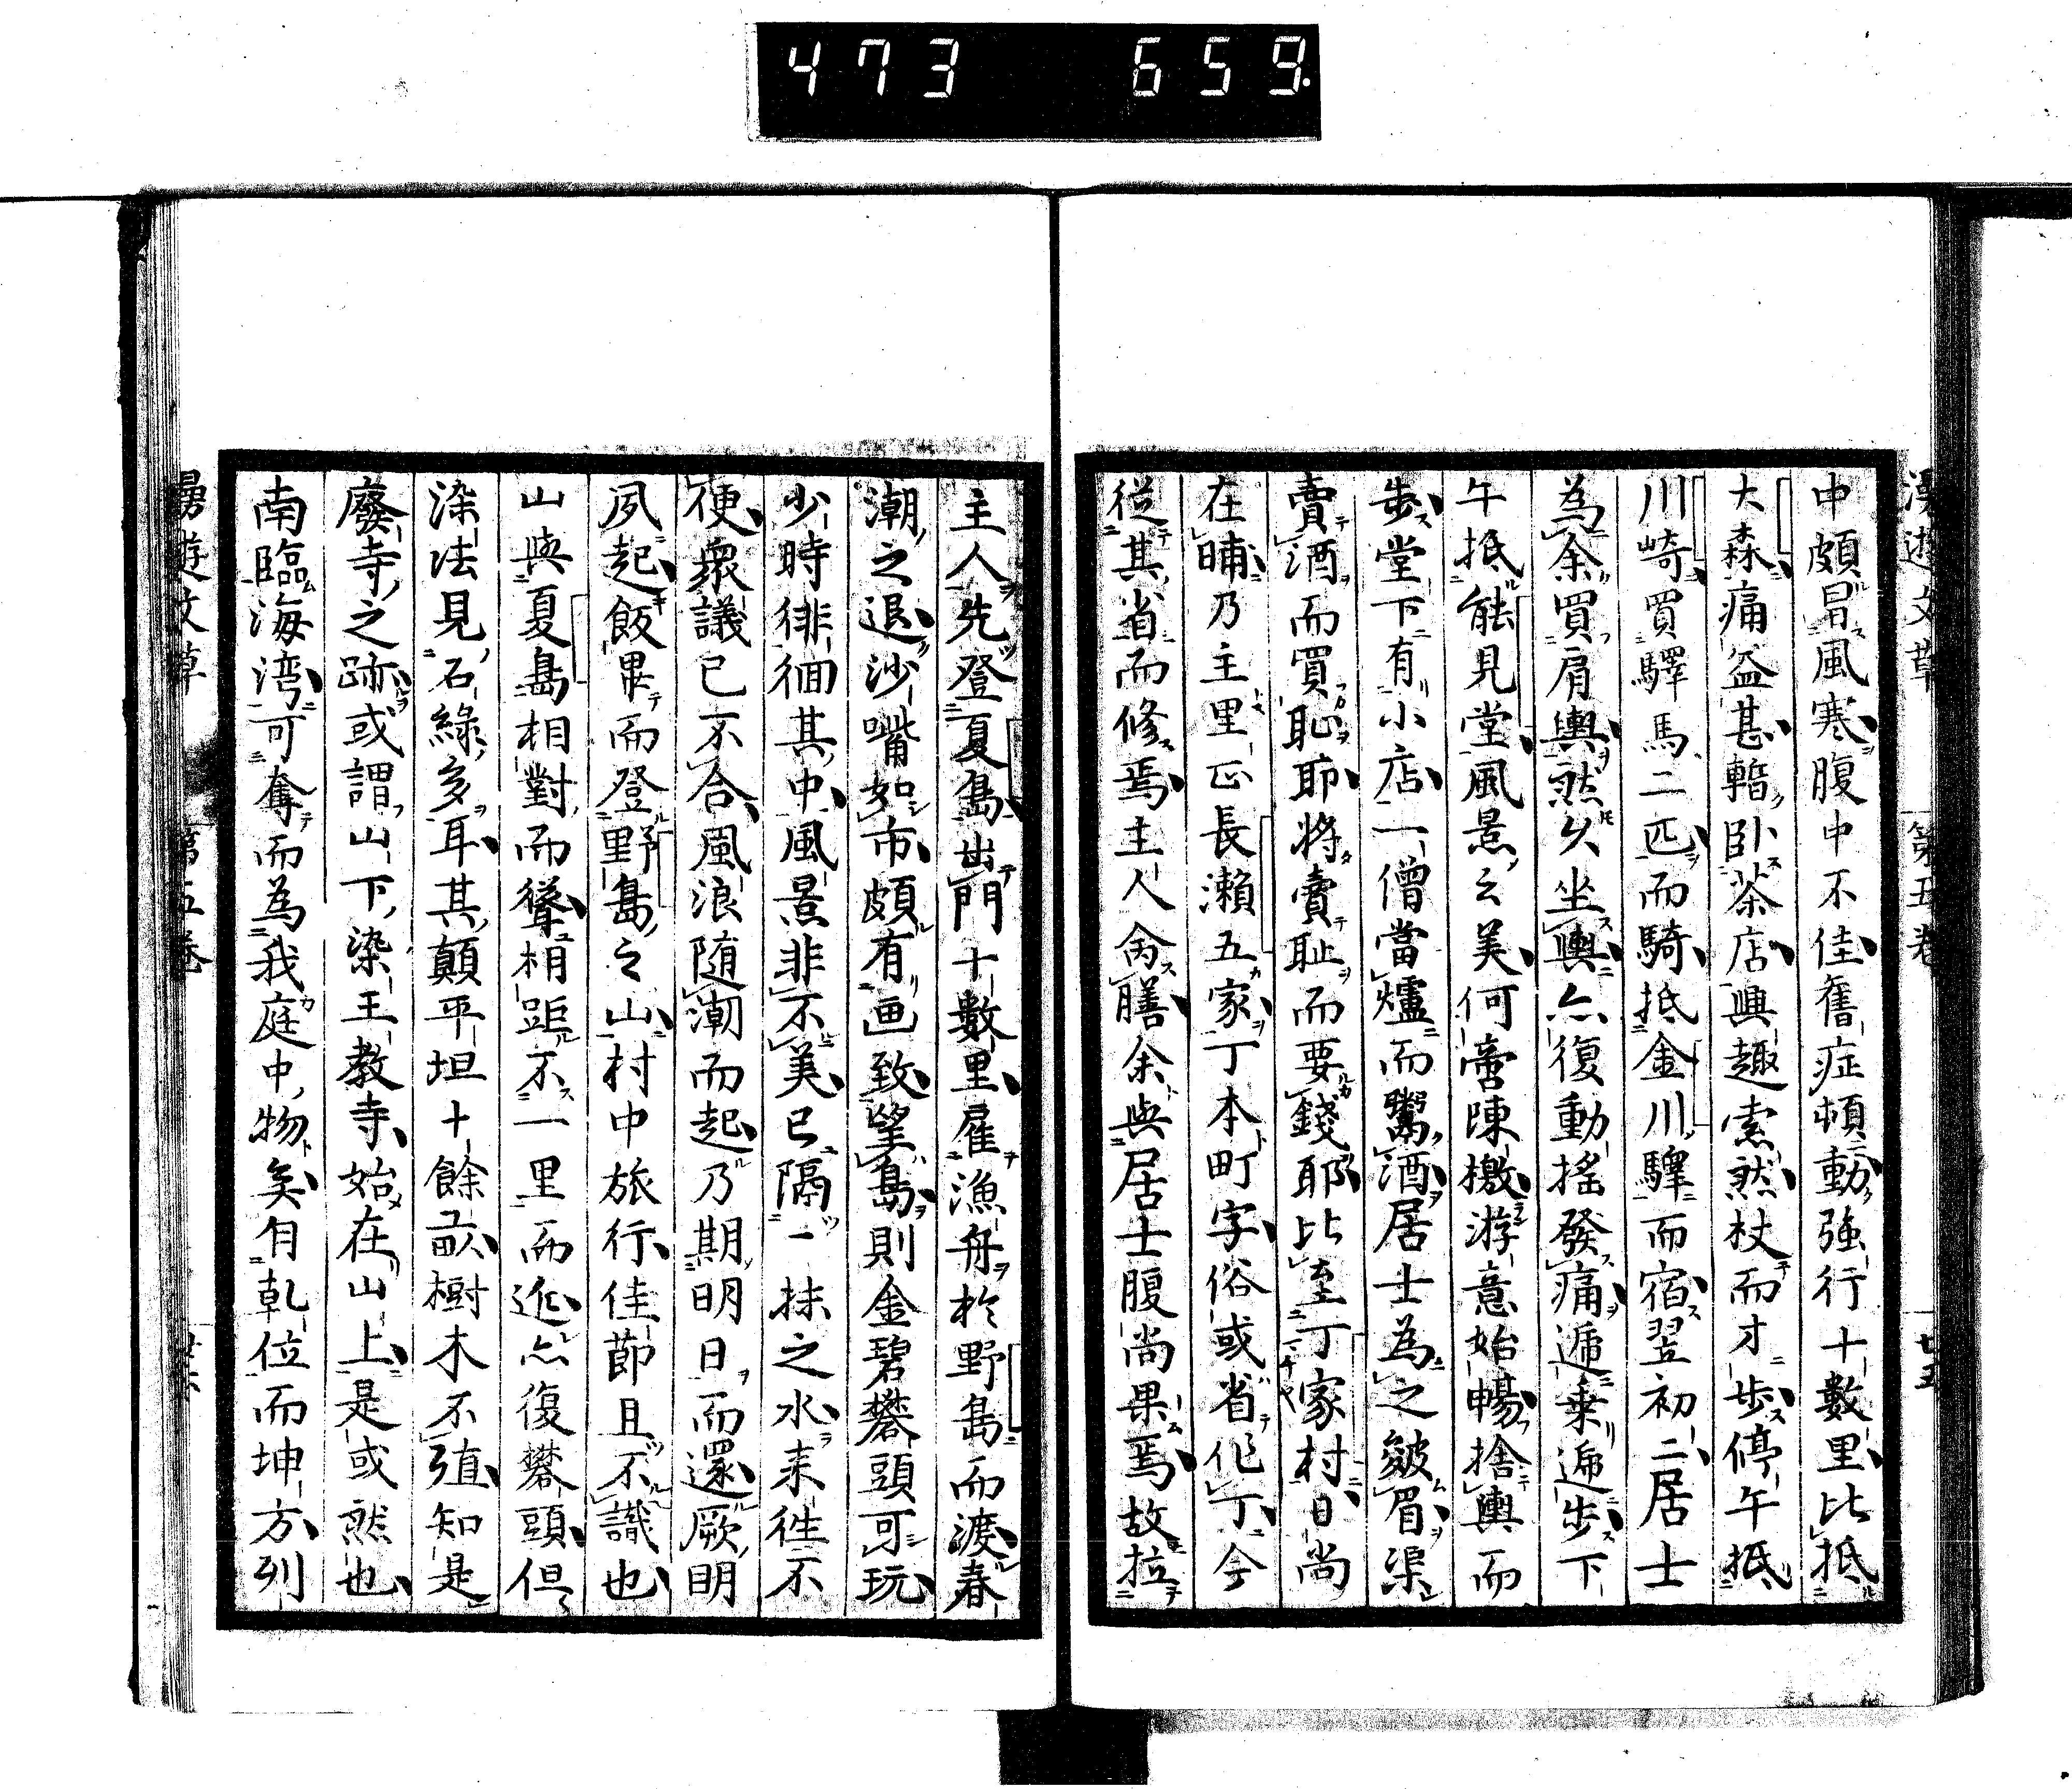 473 659
漫遊文草 第五巻 廿五
中頗冒風寒腹中不佳舊症頓動強行十數里比抵
大森痛益甚暫臥茶店興趣索然杖而才歩停午抵
川崎買驛馬二匹而騎抵金川驛而宿翌初二居士
為余買肩輿然久坐輿亦復動搖發痛遞乗遞歩下
午抵能見堂風景之美何啻陳檄游意始暢捨輿而
歩堂下有小店一僧當爐而鬻酒居士為之皺眉渠
賣酒而買恥耶將賣恥而要錢耶比至丁家村日尚
在晡乃主里正長瀬五家丁本町字俗或省作丁今
従其省而修焉主人禽膳余與居士腹尚果焉故拉
主人先登夏島出門十數里雇漁舟於野島而渡春
潮之退沙嘴如布頗有画致望島則金碧礬頭可玩
少時徘徊其中風景非不美已隔一抹之水来往不
便衆議已不合風浪随潮而起乃期明日而還厥明
夙起飯畢而登野島之山村中旅行佳節且不識也
山與夏島相對而聳相距不一里而近亦復礬頭但
染法見石緑多耳其顛平坦十餘畝樹木不殖知是
廢寺之跡或謂山下染王教寺始在山上是或然也
南臨海湾可奪而為我庭中物矣自乾位而坤方列
漫遊文草 第五巻 廿六